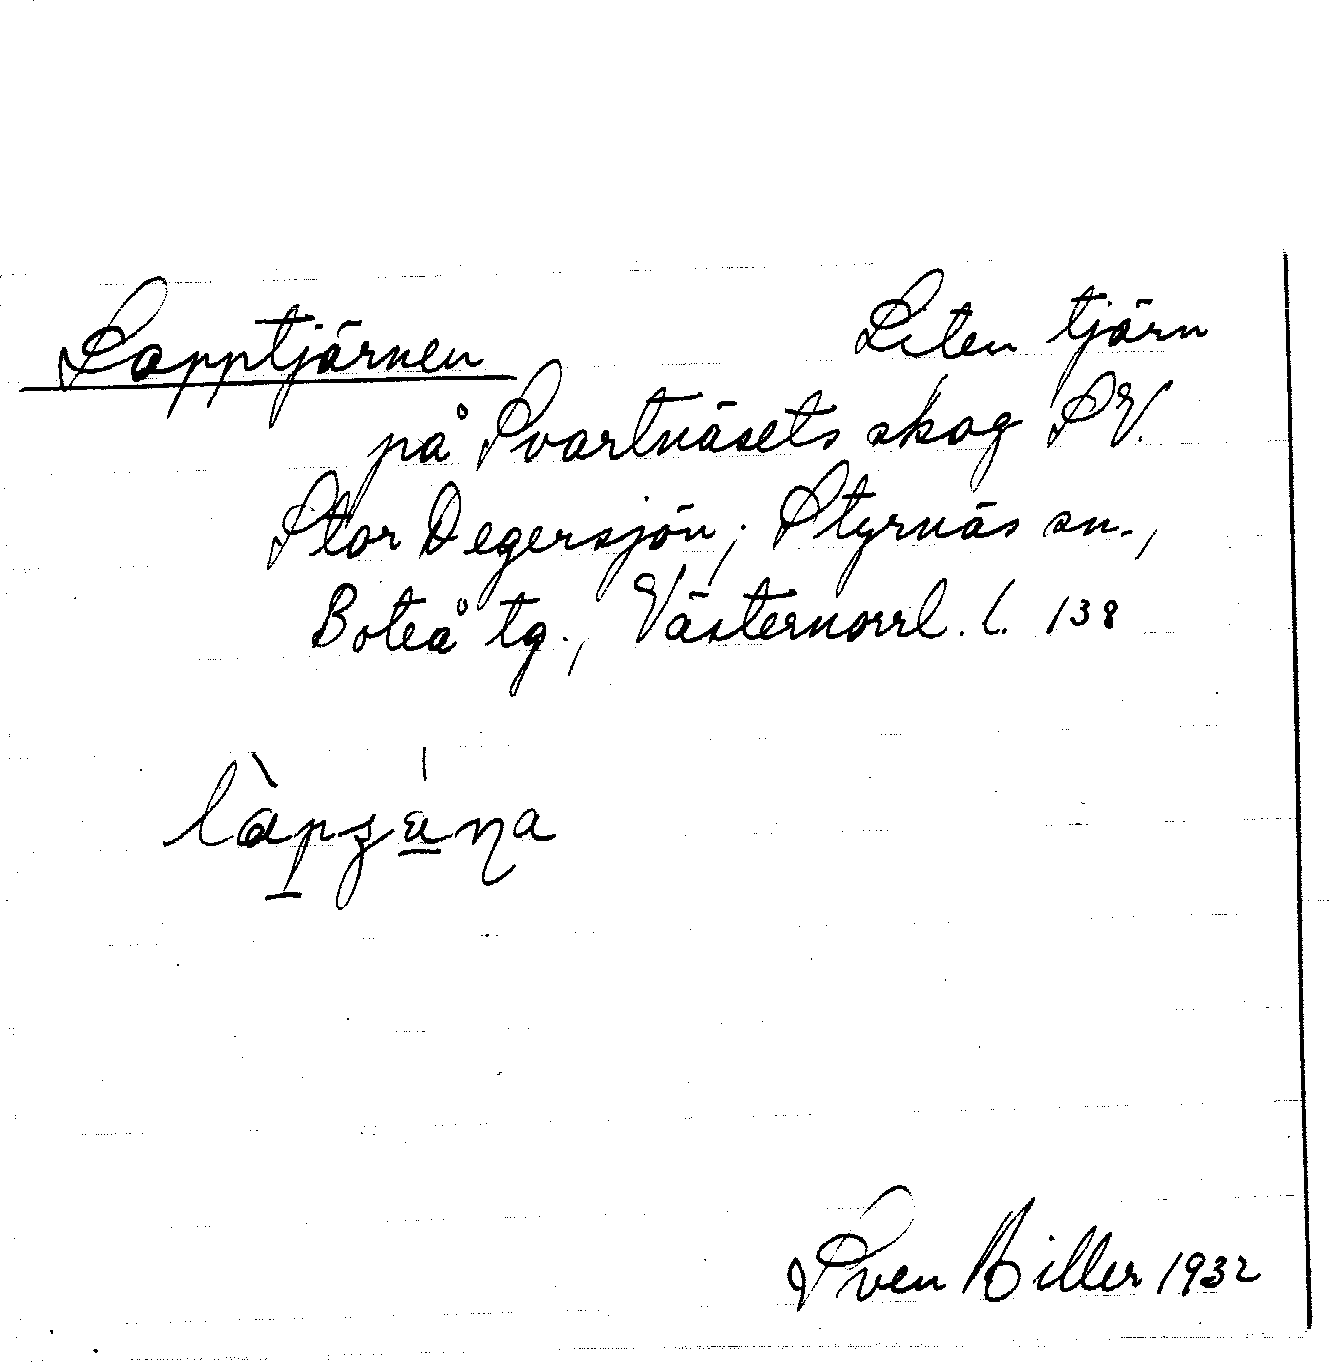 Lapptjärnen Liten tjärn
på Svartnäsets skog SV.
Stor Degersjön; Styrnäs sn.,
Boteå tg., Västernorrl. l. 138
Sven Hiller 1932